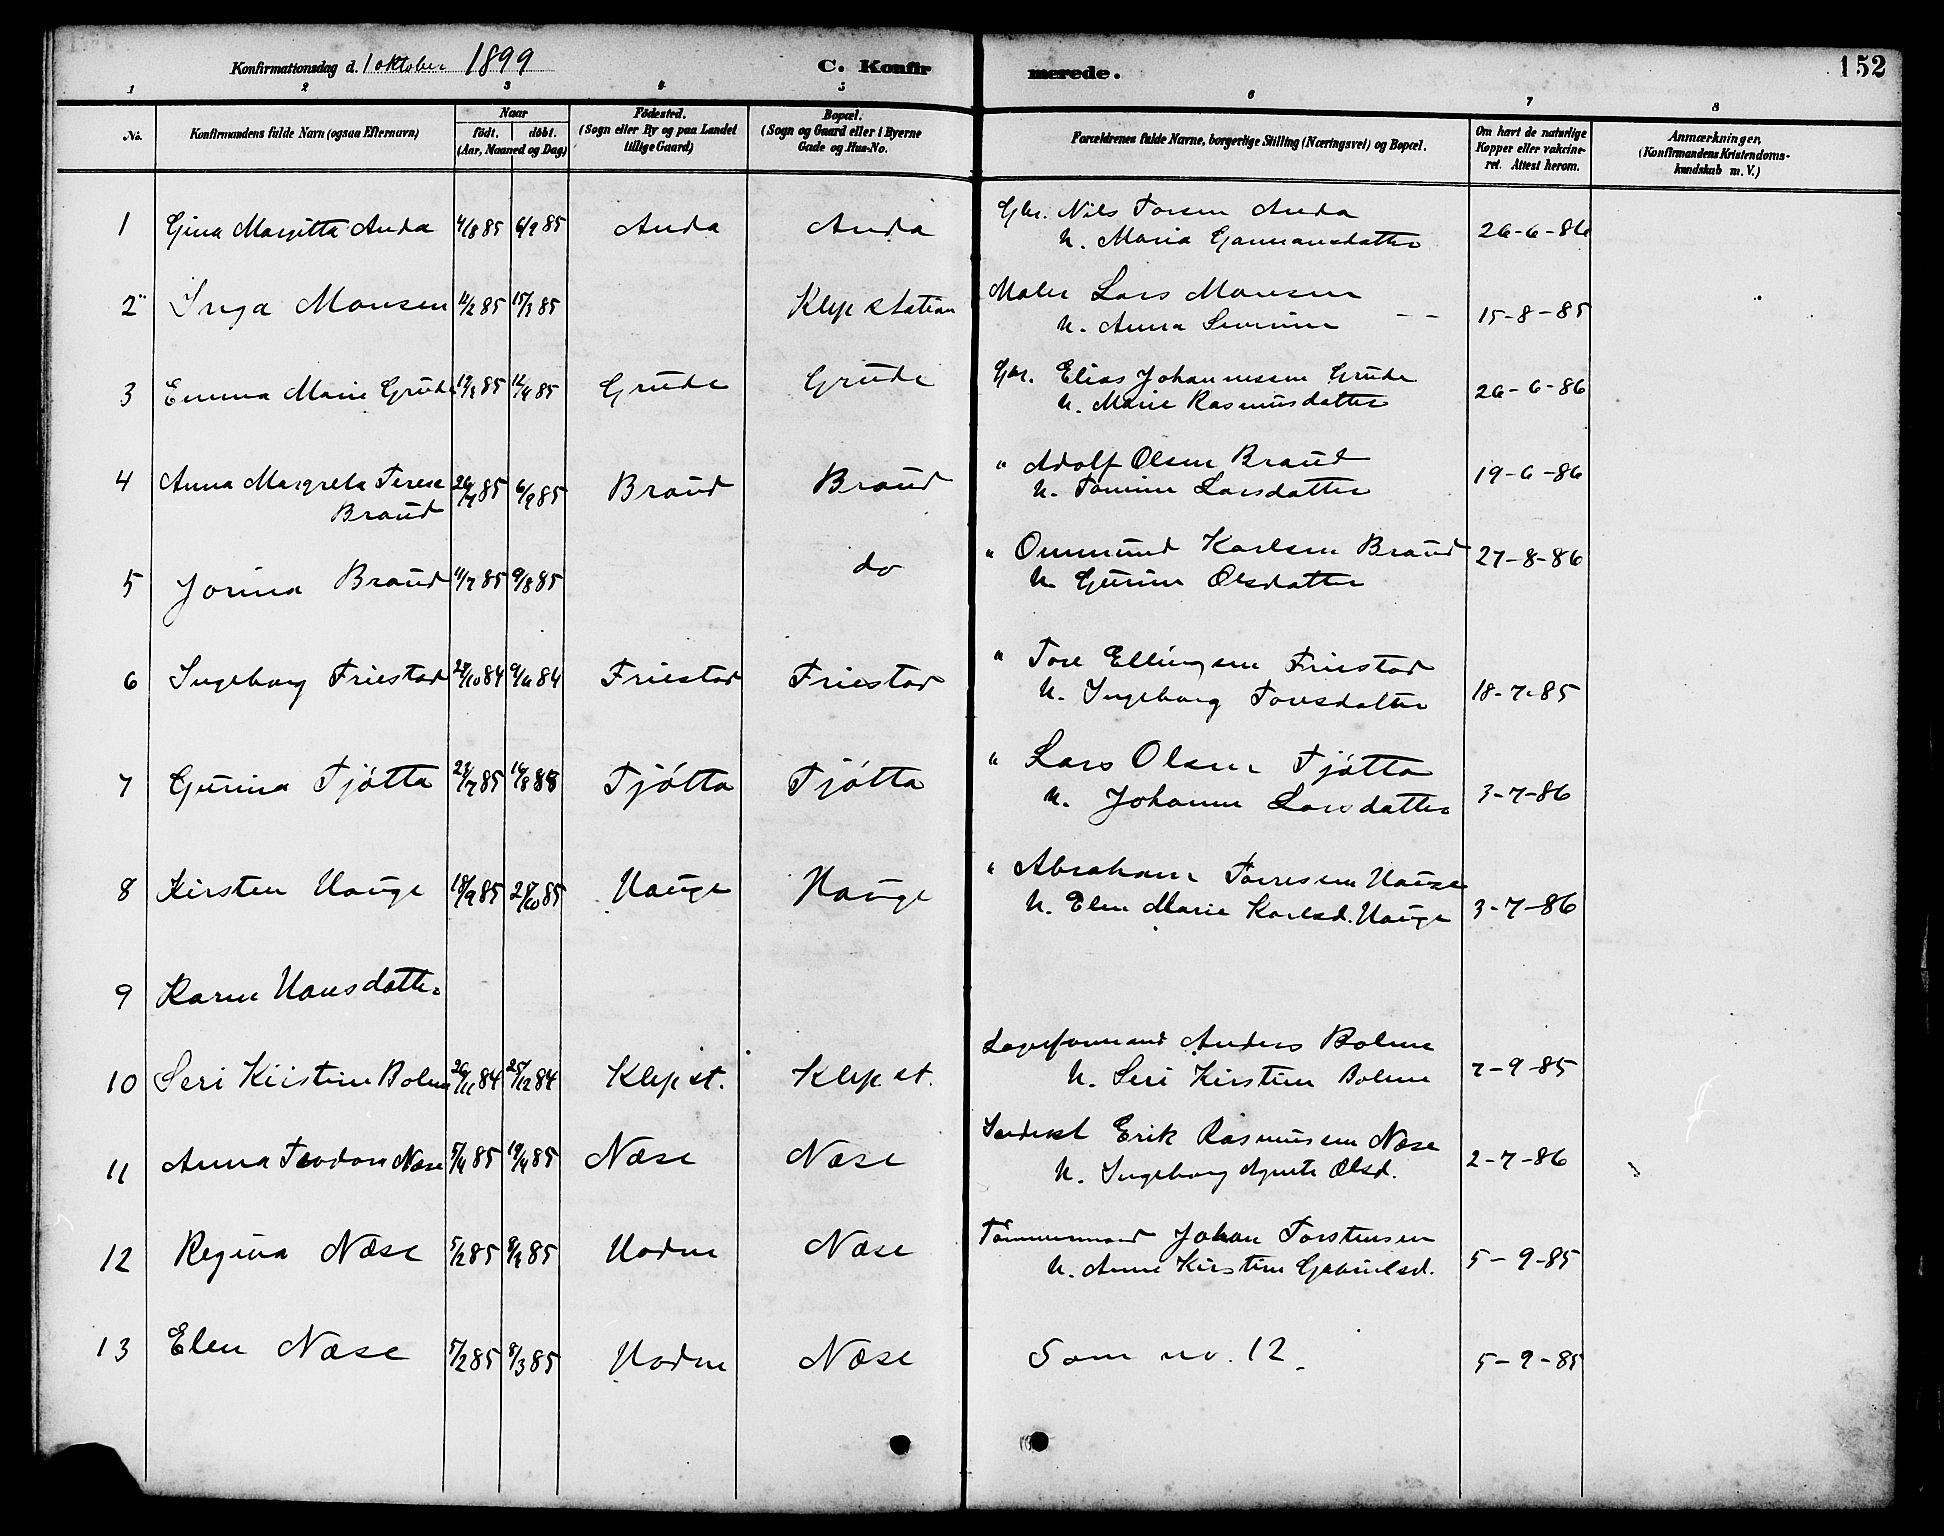 Konfirmationsdag d. 1 oktober 1899 C. Konfirmerede. 152
1 2 3 4 5 6 7 8
No. Konfirmandens fulde Navn (ogsaa Efternavn) Naar födt. döbt. (Aar, Maaned og Dag) Födested. (Sogn eller By og paa Landet tillige Gaard) Bopæl. (Sogn og Gaard eller i Byerne Gade og Hus-No. Forældrenes fulde Navne, borgerlige Stilling (Næringsvei) og Bopæl. Om havt de naturlige Kopper eller vakcineret. Attest herom. Anmærkninger, (Konfirmandens Kristendomskundskab m. V.)
1 Gina Margitta Anda 4/8 85 6/9 85 Anda Anda Gbr. Nils Torsen Anda 26-6-86
h. Maria Gunnarsdatter
2 Inga Monsen 11/2 85 15/3 85 Klep station Maler Lars Monsen 15-8-85
h. Anna Severine
3 Emma Marie Grude 12/4 85 Grude Grude Gbr. Elias Johannessen Grude 26-6-86
h. Marie Rasmusdatter
4 Anna Margreta Terese 26/7 85 6/9 85 Braud Braud " Adolf Olsen Braud 19-6-86
Braud h. Larsdatter
5 Jorina Braud 11/7 85 9/8 85 do " Ommund Karlsen Braud 27-8-86
h. Gurine Olsdatter
6 Ingeborg Friestad 28/10 84 9/11 84 Friestad Friestad " Tore Ellingsen Friestad 18-7-85
h. Ingeborg Toresdatter
7 Gurina Tjötta 23/7 85 16/8 88 Tjötta Tjötta " Lars Olsen Tjötta 3-7-86
h. Johanne Larsdatter
8 Kirsten Hauge 18/9 85 25/10 85 Hauge Hauge " Abraham Torresen Hauge 3-7-86
h. Elen Marie Karlsd. Hauge
9 Karen Hansdatter
10 Seri Kirstine Bolme 26/11 84 25/12 84 Klep st. Klep st. Lageformand Anders Bolme 7-9-85
h. Seri Kirstine Bolme
11 Anna Teodora Næse 5/4 85 19/4 85 Næse Næse Inderst Erik Rasmussen Næse 2-7-86
h. Ingeborg Agnete Olsd.
12 Regina Næse 5/2 85 8/3 85 Hodne Næse Tömmermand Johan Torstensen 5-9-85
h. Anne Kirstine Gabrielsd.
13 Elen Næse 5/2 85 8/3 85 Hodne Næse Som no. 12. 5-9-85